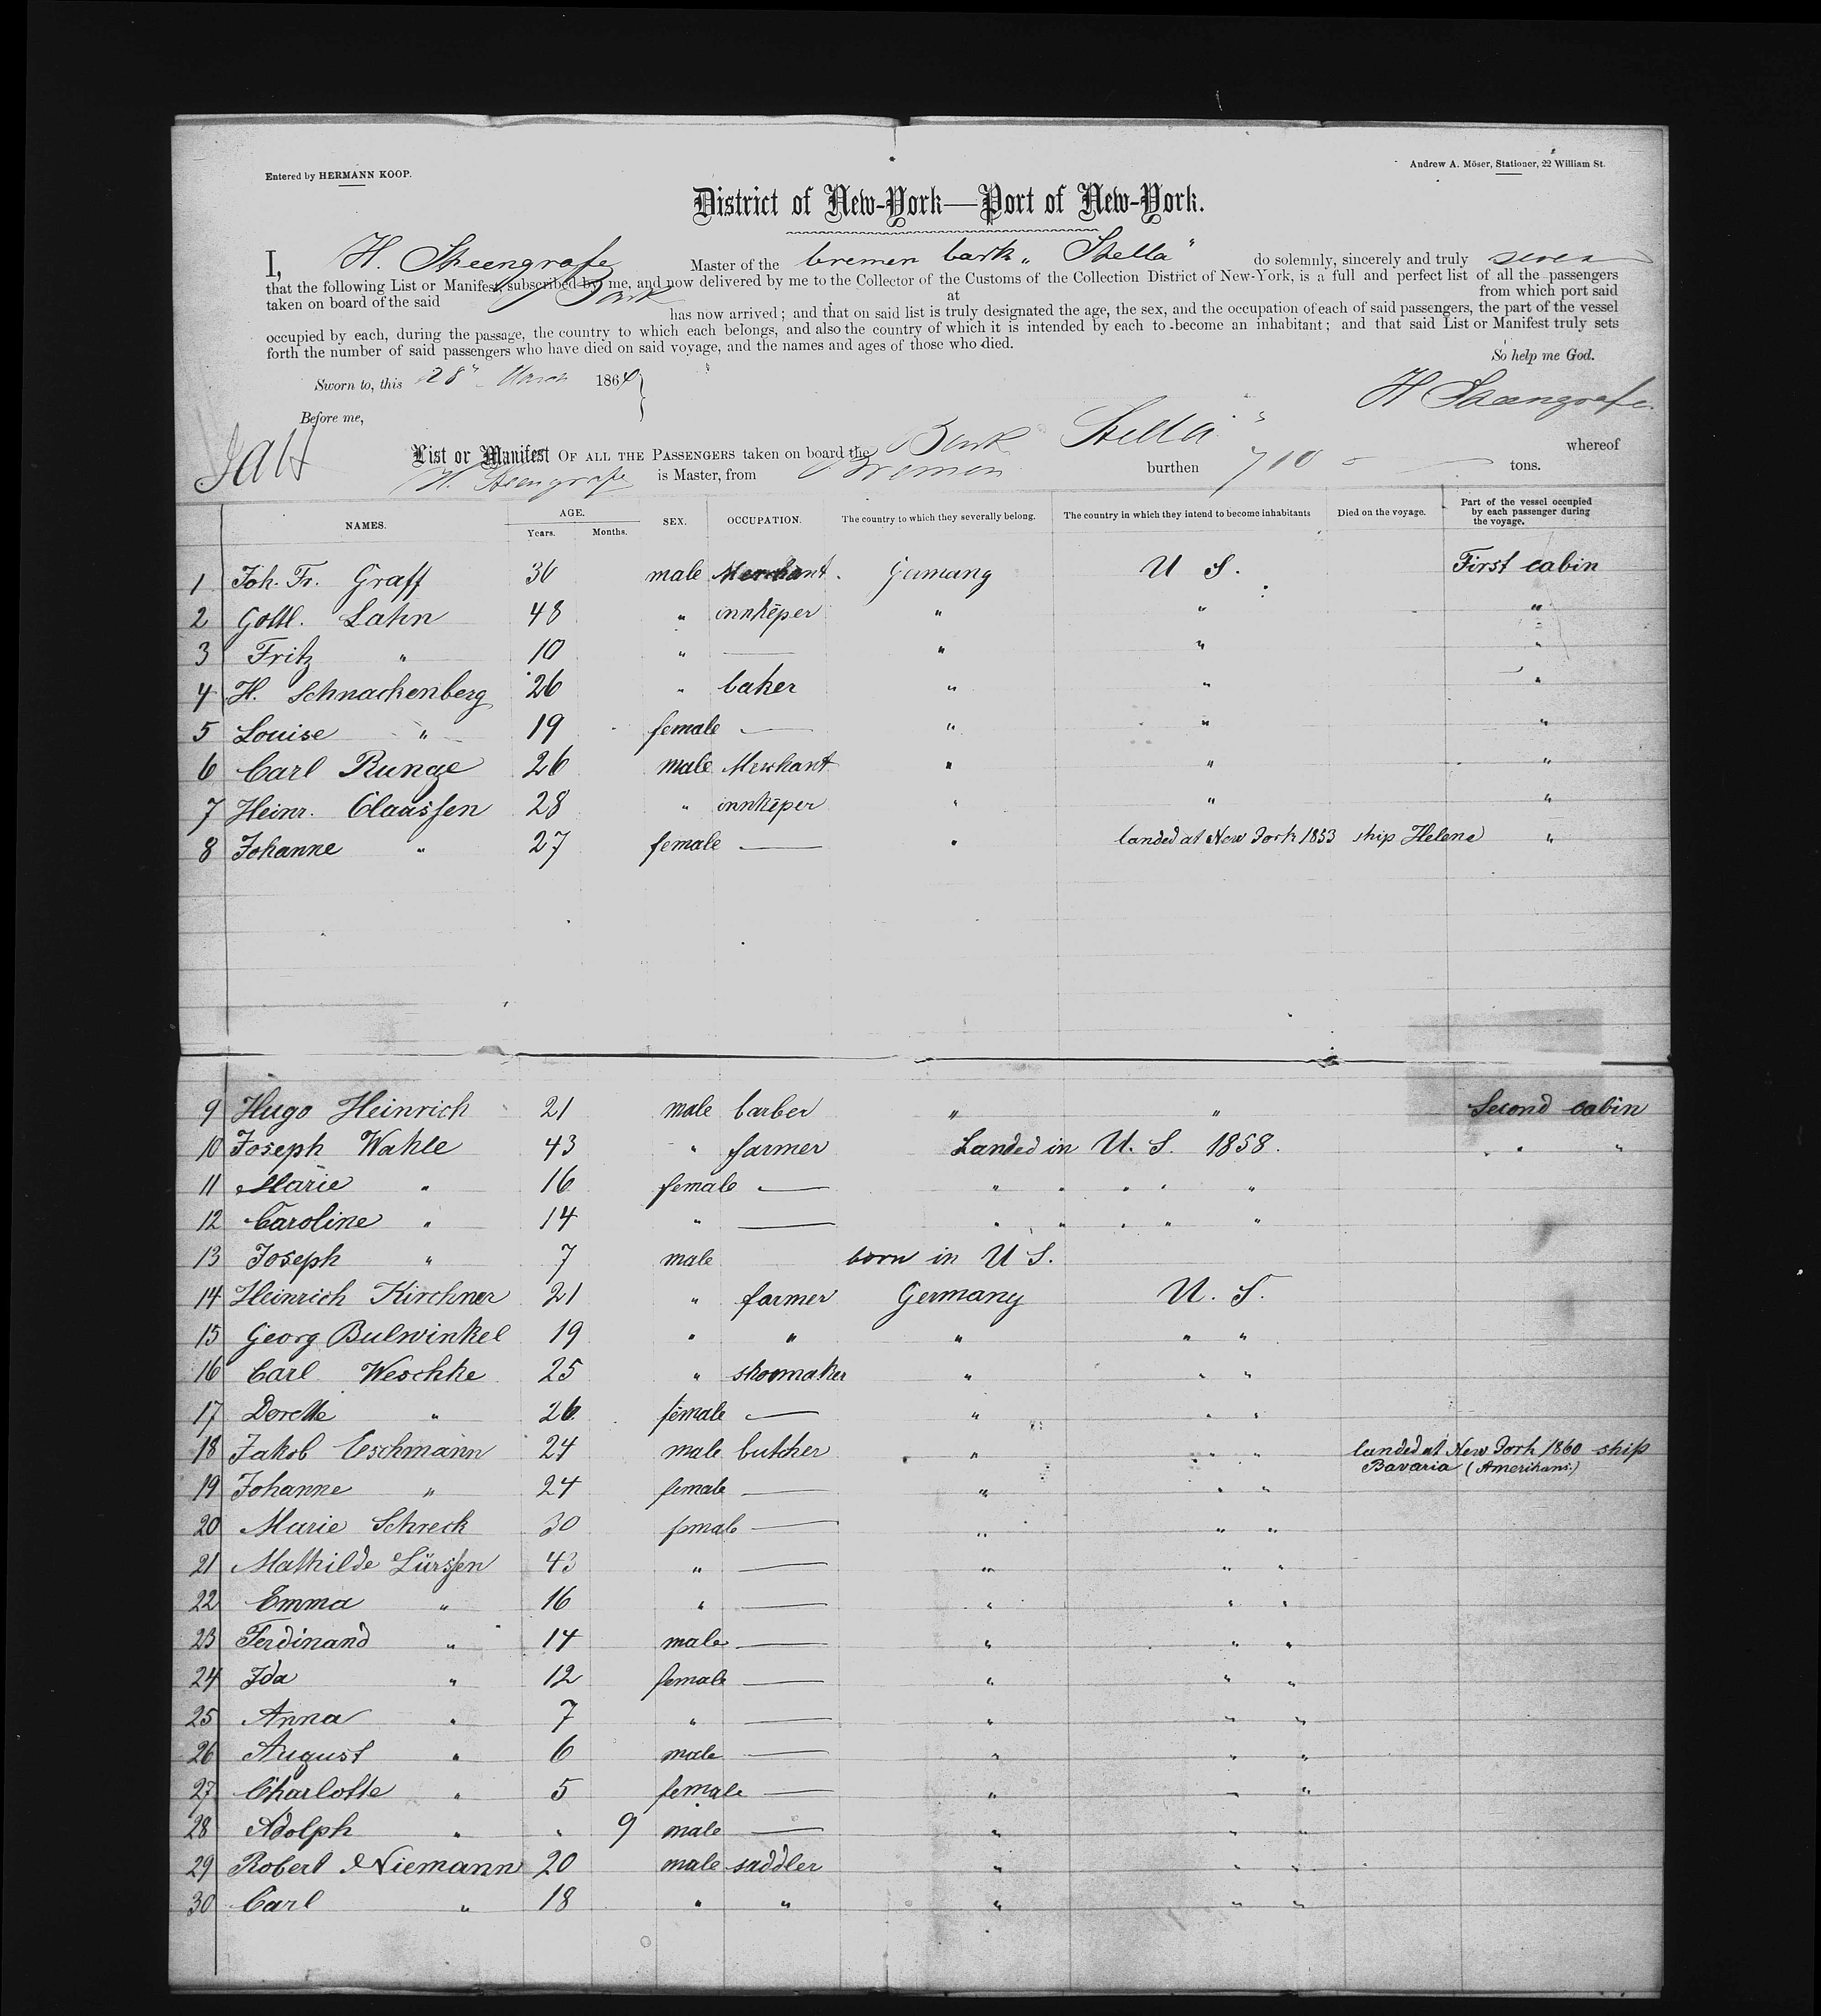 Entered by HERMANN KOOP.
Andrew A. Möser, Stationer, 22 William St.
District of New-York—Port of New-York.
I, H. Steengrafe Master of the bremen bark „Stella" do solemnly, sincerely and truly swear
that the following List or Manifest, subscribed by me, and now delivered by me to the Collector of the Customs of the Collection District of New-York, is a full and perfect list of all the passengers
taken on board of the said Bark at from which port said
has now arrived; and that on said list is truly designated the age, the sex, and the occupation of each of said passengers, the part of the vessel
occupied by each, during the passage, the country to which each belongs, and also the country of which it is intended by each to become an inhabitant; and that said List or Manifest truly sets
forth the number of said passengers who have died on said voyage, and the names and ages of those who died.
So help me God.
Sworn to, this 28" March 1864
H Steengrafe
Before me,
List or Manifest OF ALL THE PASSENGERS taken on board the Bark Stella" whereof
H. Steengrafe is Master, from Bremen burthen 710 tons.
NAMES. AGE. Years. Months. SEX. OCCUPATION. The country to which they severally belong. The country in which they intend to become inhabitants Died on the voyage. Part of the vessel occupied by each passenger during the voyage.
1 Joh. Fr. Graff 36 male Merchant. Germany U S. First cabin
2 Gottl. Lahn 48 " innkēper " " "
3 Fritz " 10 " — " " "
4 H. Schnackenberg 26 " baker " " "
5 Louise " 19 female — " " "
6 Carl Runge 26 male Merchant " " "
7 Heinr. Claassen 28 " innkēper " " "
8 Johanne " 27 female — " landed at New York 1853 ship Helene "
9 Hugo Heinrich 21 male barber " " Second cabin
10 Joseph Wahle 43 " farmer Landed in U. S. 1858. " "
11 Marie " 16 female — " " " " "
12 Caroline " 14 " — " " " " "
13 Joseph " 7 male born in U S.
14 Heinrich Kirchner 21 " farmer Germany U. S.
15 Georg Bulwinkel 19 " " " " "
16 Carl Weschke 25 " shoomaker " " "
17 Dorette " 26 female — " " "
18 Jakob Eschmann 24 male butcher " " " landed at New York 1860 ship
Bavaria (Amerikans:)
19 Johanne " 24 female — " " "
20 Marie Schreck 30 female — " " "
21 Mathilde Lürssen 43 " — " " "
22 Emma " 16 " — " " "
23 Ferdinand " 14 male — " " "
24 Ida " 12 female — " " "
25 Anna " 7 " — " " "
26 August " 6 male — " " "
27 Charlotte " 5 female — " " "
28 Adolph " " 9 male — " " "
29 Robert Niemann 20 male saddler " " "
30 Carl " 18 " " " " "